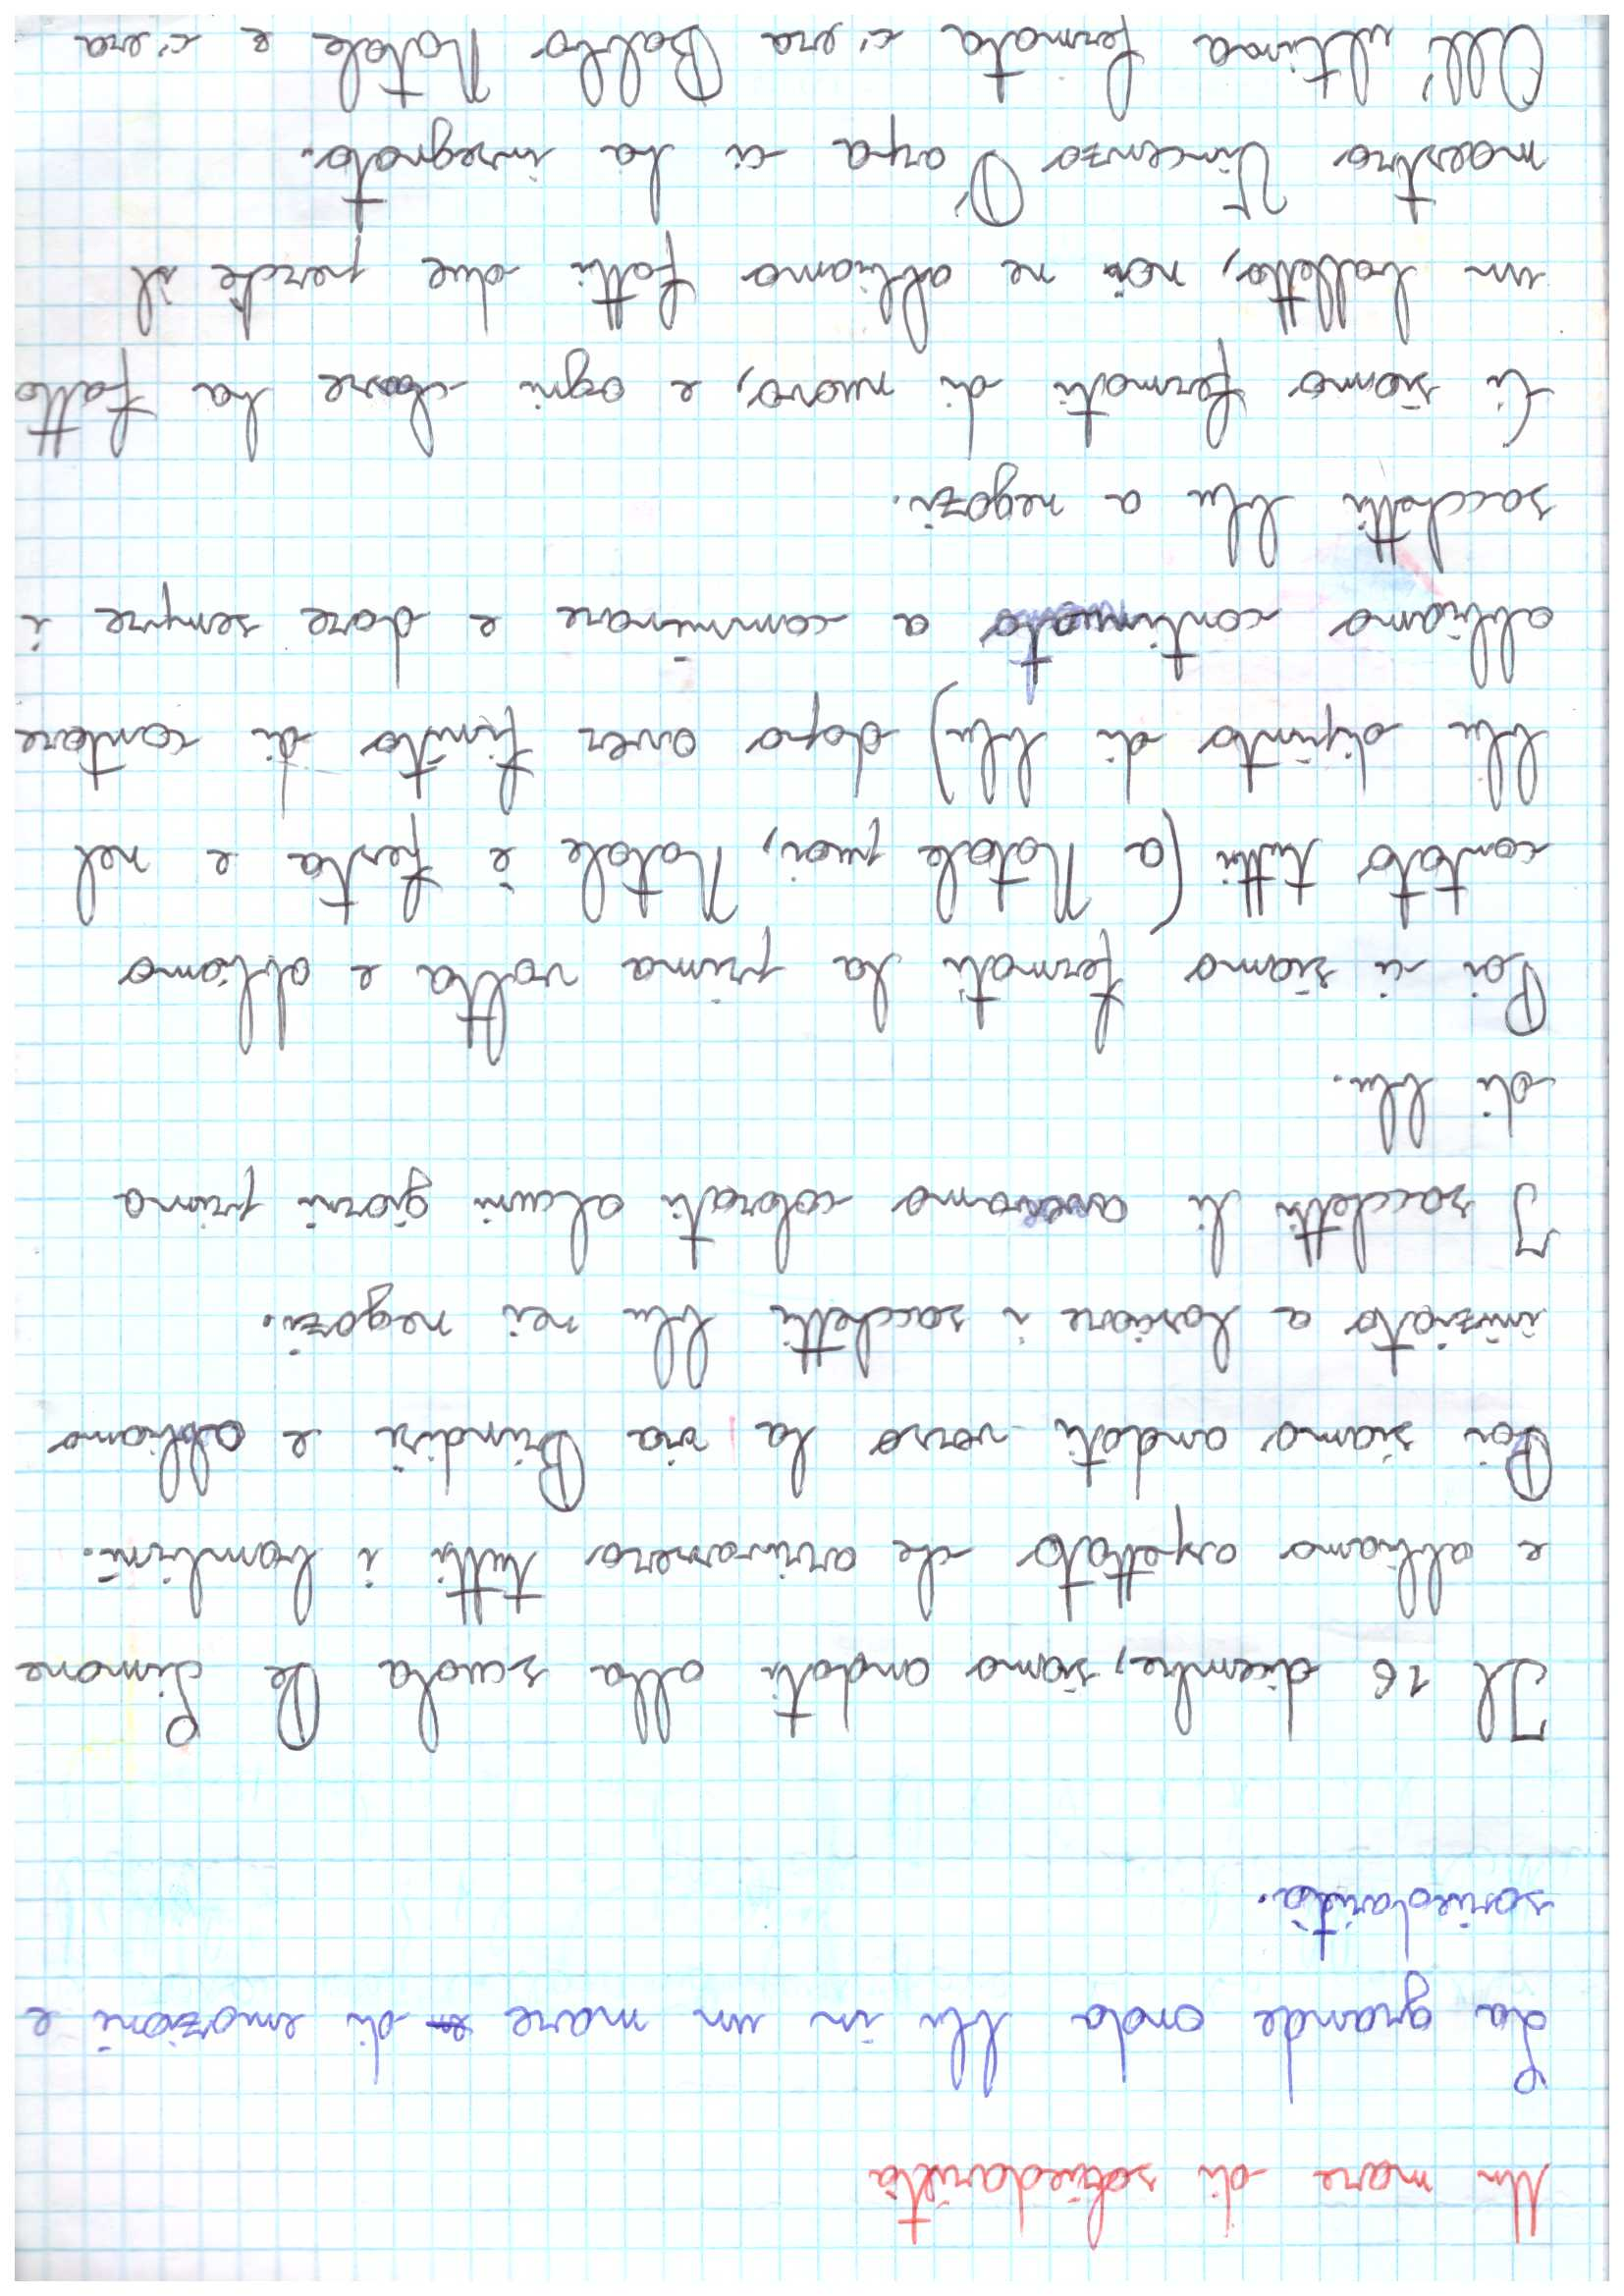 Un mare di soliedarietà
La grande onda blu in un mare di emozioni e
soriedarietà.
Il 16 dicembre, siamo andati alla scuola De Simone
e abbiamo aspettato che arrivarsero tutti i bambini.
Poi siamo andati verso la via Brindisi e abbiamo
iniziato a lasciare i sacchetti blu nei negozi.
I sacchetti li avevamo colorati alcuni giorni prima
di blu.
Poi ci siamo fermati la prima volta e abbiamo
cantato tutti (a Natale puoi, Natale è festa e nel
blu dipinto di blu) dopo aver finito di cantare
abbiamo continuato a camminare e dare sempre i
sacchetti blu a negozi.
Ci siamo fermati di nuovo, e ogni classe ha fatto
un balletto, noi ne abbiamo fatti due perchè il
maestro Vincenzo D'arpa ci ha insegnato.
All'ultima fermata c'era Balbo Natale e c'era